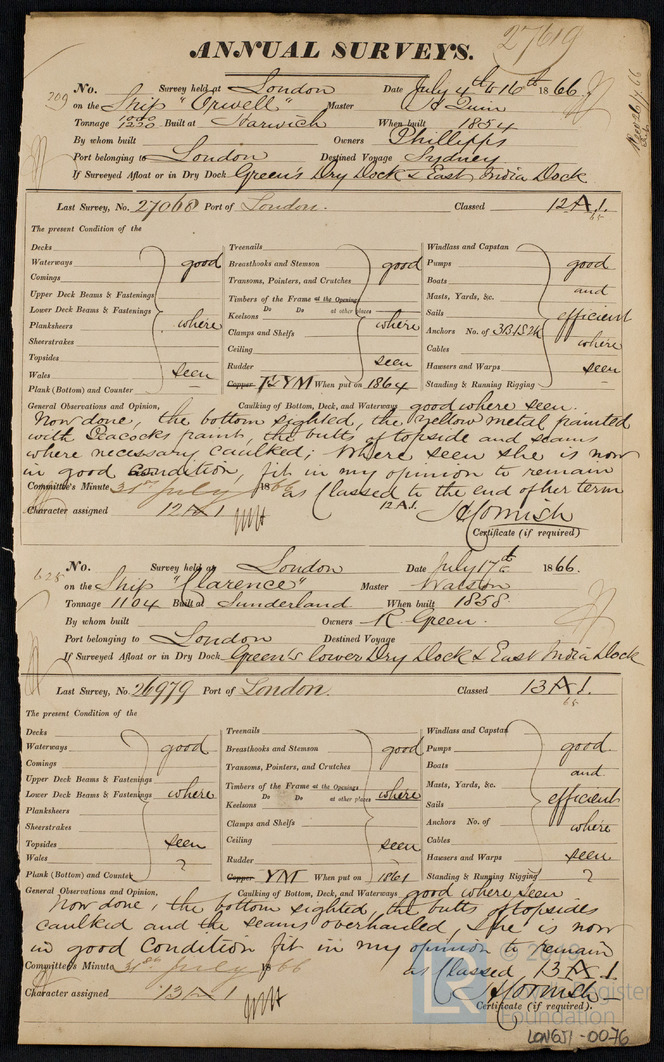 27619
ANNUAL SURVEYS.
209 No. Survey held at London Date July 4th to 16th 1866
on the Ship "Orwell" Master
Tonnage 1230 Built at Harwich When built 1854
By whom built Owners Phillipps
Port belonging to London Destined Voyage Sydney
If Surveyed Afloat or in Dry Dock Green's Dry Dock & East India Dock
Last Survey, No. 27068 Port of London. Classed 12 A 1.
65
The present Condition of the
Decks
Waterways good
Comings
Upper Deck Beams & Fastenings
Lower Deck Beams & Fastenings
Planksheers where
Sheerstrakes
Topsides
Wales seen
Plank (Bottom) and Counter
Treenails
Breasthooks and Stemson good
Transoms, Pointers, and Crutches
Timbers of the Frame at the Openings
Do Do at other places
Keelsons
Clamps and Shelfs where
Ceiling
Rudder seen
Copper YM When put on 1864
Windlass and Capstan
Pumps good
Boats and
Masts, Yards, &c.
Sails efficient
Anchors No. of 3B1S2K
Cables where
Hawsers and Warps seen
Standing & Running Rigging
General Observations and Opinion, Caulking of Bottom, Deck, and Waterways good where seen.
Now done, the bottom sighted, the yellow metal painted
with Peacocks paint, the butts of topside and seams
where necessary caulked; Where seen she is now
in good Condition, fit in my opinion to remain
Committee's Minute 31st July 1866 as Classed to the end of her term
12 A.1.
Character assigned 12 A 1 Cornish
Certificate (if required)
625 No. Survey held at London Date July 17th 1866.
on the Ship "Clarence" Master Watson
Tonnage 1104 Built at Sunderland When built 1858.
By whom built Owners R. Green.
Port belonging to London Destined Voyage
If Surveyed Afloat or in Dry Dock Green's lower Dry Dock & East India Dock
Last Survey, No. 26979 Port of London. Classed 13 A 1.
65
The present Condition of the
Decks
Waterways good
Comings
Upper Deck Beams & Fastenings
Lower Deck Beams & Fastenings where
Planksheers
Sheerstrakes
Topsides seen
Wales
Plank (Bottom) and Counter
Treenails
Breasthooks and Stemson good
Transoms, Pointers, and Crutches
Timbers of the Frame at the Openings
Do Do at other places where
Keelsons
Clamps and Shelfs
Ceiling seen
Rudder
Copper YM When put on 1861
Windlass and Capstan
Pumps good
Boats and
Masts, Yards, &c.
Sails efficient
Anchors No. of where
Cables
Hawsers and Warps seen
Standing & Running Rigging
General Observations and Opinion, Caulking of Bottom, Deck, and Waterways good where seen
Now done, the bottom sighted, the butts of topsides
caulked and the seams overhauled, She is now
in good Condition fit in my opinion to remain
Committee's Minute 31st July 1866 as Classed 13 A 1.
Character assigned 13 A 1 Cornish
Certificate (if required).
LONGJ1-0076